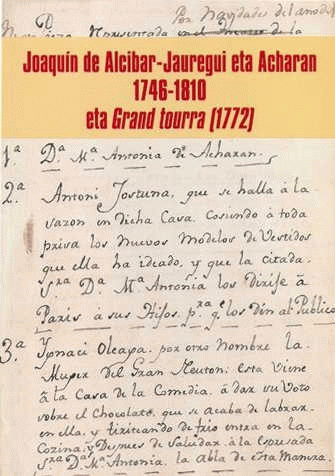 Por Navidades del ano de
Pieza Representada en el
Joaquín de Alcibar-Jauregui eta Acharan
1746-1810
eta Grand tourra (1772)
1ª Dª Mª Antonia de Acharan.
2ª Antoni Jostuna, que se halla á la
sazon en dicha Casa, Cosiendo á toda
prisa los Nuevos Modelos de Vestidos
que ella ha ideado, y que la citada
Srª Dª Mª Antonia los dirije á
Paris á sus Hijos, prª qe los den al Publico
3ª Ygnaci Oleaga, por otro Nombre la
Muger del Gran Neuton: esta Viene
á la Casa de la Comedia, á dar su Voto
sobre el Chocolate, que se acaba de labrar
en ella, y tiritando de frio entra en la
Cozina, y Despues de Saludar á la espresada
Srª Dª Mª Antonia, la abla de esta Manera